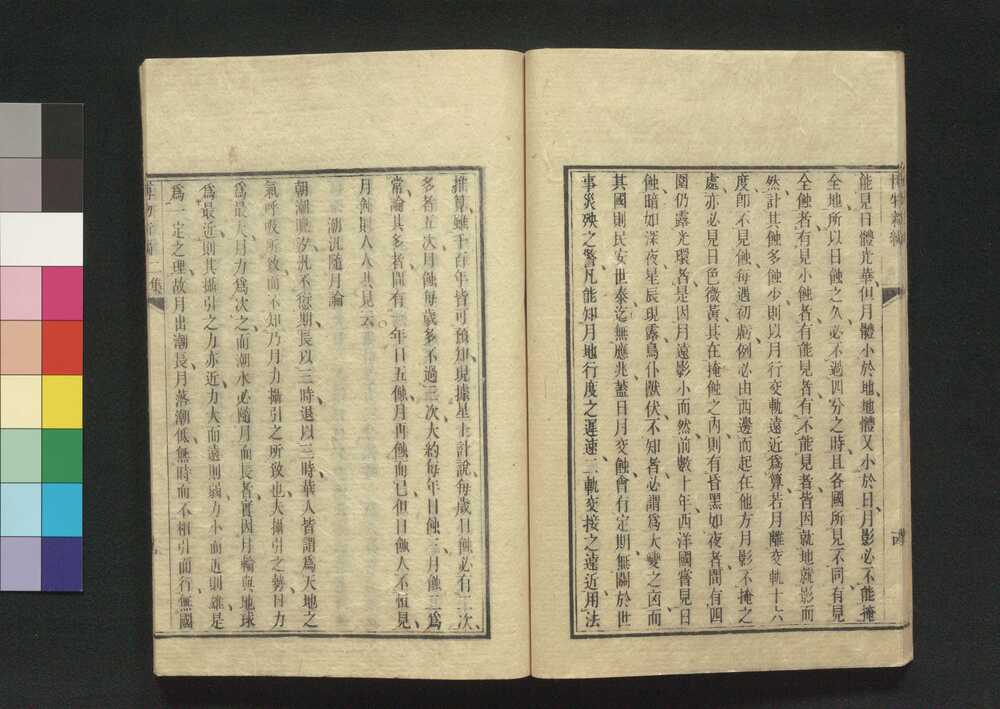 能見日體光華但月體小於地地體又小於日月影必不能掩
全地所以日蝕之久必不過四分之時且各國所見不同有見
全蝕者有見小蝕者有能見者有不能見者皆因就地就影而
然計其蝕多蝕少則以月行交軌遠近爲算若月離交軌十六
度卽不見蝕每遇初虧例必由西邊而起在他方月影不掩之
處亦必見日色微黃其在掩蝕之內則有昏黑如夜者間有四
圍仍露光環者是因月遠影小而然前數十年西洋國嘗見日
蝕暗如深夜星辰現露鳥仆獸伏不知者必謂爲大變之凶而
其國則民安世泰迄無應兆蓋日月交蝕會有定期無關於世
事災殃之警凡能知月地行度之遲速二軌交接之遠近用法
推算雖千百年皆可預知現據星士計說每歲日蝕必有二次
多者五次月蝕每歲多不過三次大約每年日蝕三月蝕二爲
常論其多者間有一年日五蝕月再蝕而已但日蝕人不恒見
月蝕則人人共見云
潮汛隨月論
朝潮晚汐汛不愆期長以三時退以三時華人皆謂爲天地之
氣呼吸所致而不知乃月力攝引之所致也夫攝引之勢日力
爲最大月力爲次之而潮水必隨月而長者實因月輪與地球
爲最近則其攝引之力亦近力大而遠則弱力小而近則雖是
爲一定之理故月出潮長月落潮低無時而不相引而行無國